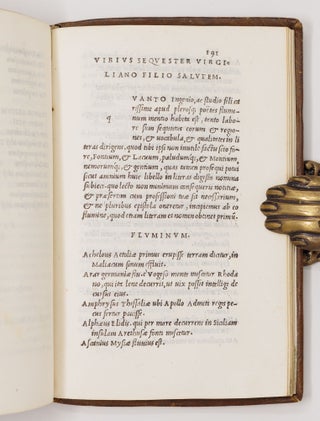 191
VIBIVS SEQVESTER VIRGI-
LIANO FILIO SALVTEM.
q
VANTO ingenio, ac studio fili ca
rissime apud plerosq; poetas flumi
num mentio habita est, tanto labo
re sum sequutus eorum & regio
nes, & uocabula, & qualitates in li
teras dirigens, quod tibi ipsi non inutile
re, Fontium, & Lacuum, paludumq;, & Montium,
nemorumq;, & gentium, quas tunc prosequi potui
amnium huic libello in literas digestis nomina
subieci. quo lecto non minimum consequeris notitiæ,
& præsertim cum professioni tuæ sit necessarium,
& ne pluribus epistola oneretur, incipiemus ab eo
flumine, quod etiam literam et nomen obtinet primũ.
FLVMINVM.
Achelous Aetoliæ primus erupisse terram dicitur, in
Maliacum sinum
Arar germaniæ fluit è Vogeso monte miscetur Rhoda
no, qui ita lene decurrit, ut uix possit intelligi de
cursus eius.
Amphrysus Thessaliæ ubi Apollo Admeti regis pe
cus fertur pauisse.
Alphæus Elidis, qui per mare decurrens in Siciliam
insulam Arethusæ fonti miscetur.
Ascanius Mysiæ fluuius est.